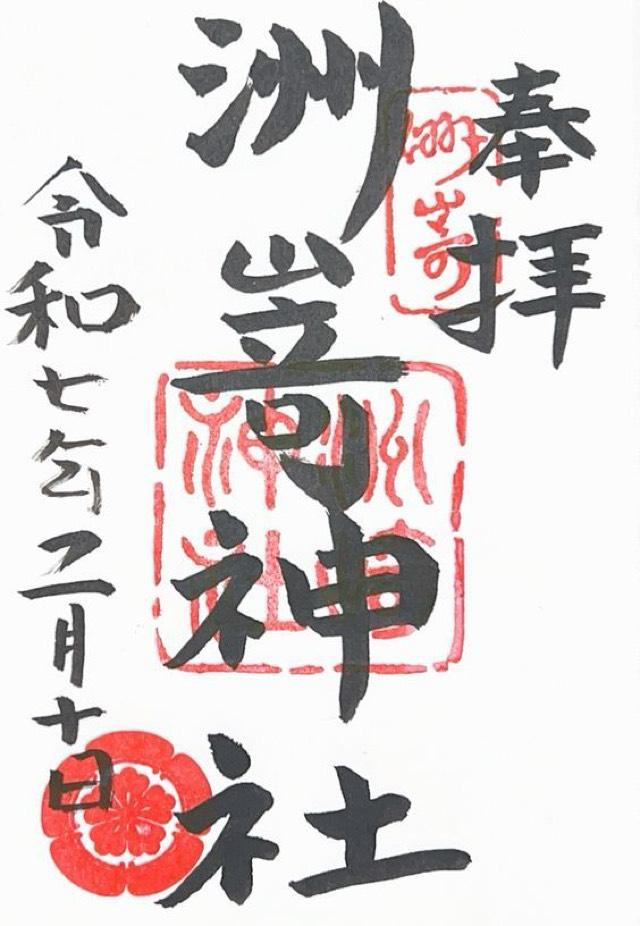 奉拝
洲嵜
洲嵜神社
洲嵜神社
令和七年二月十日